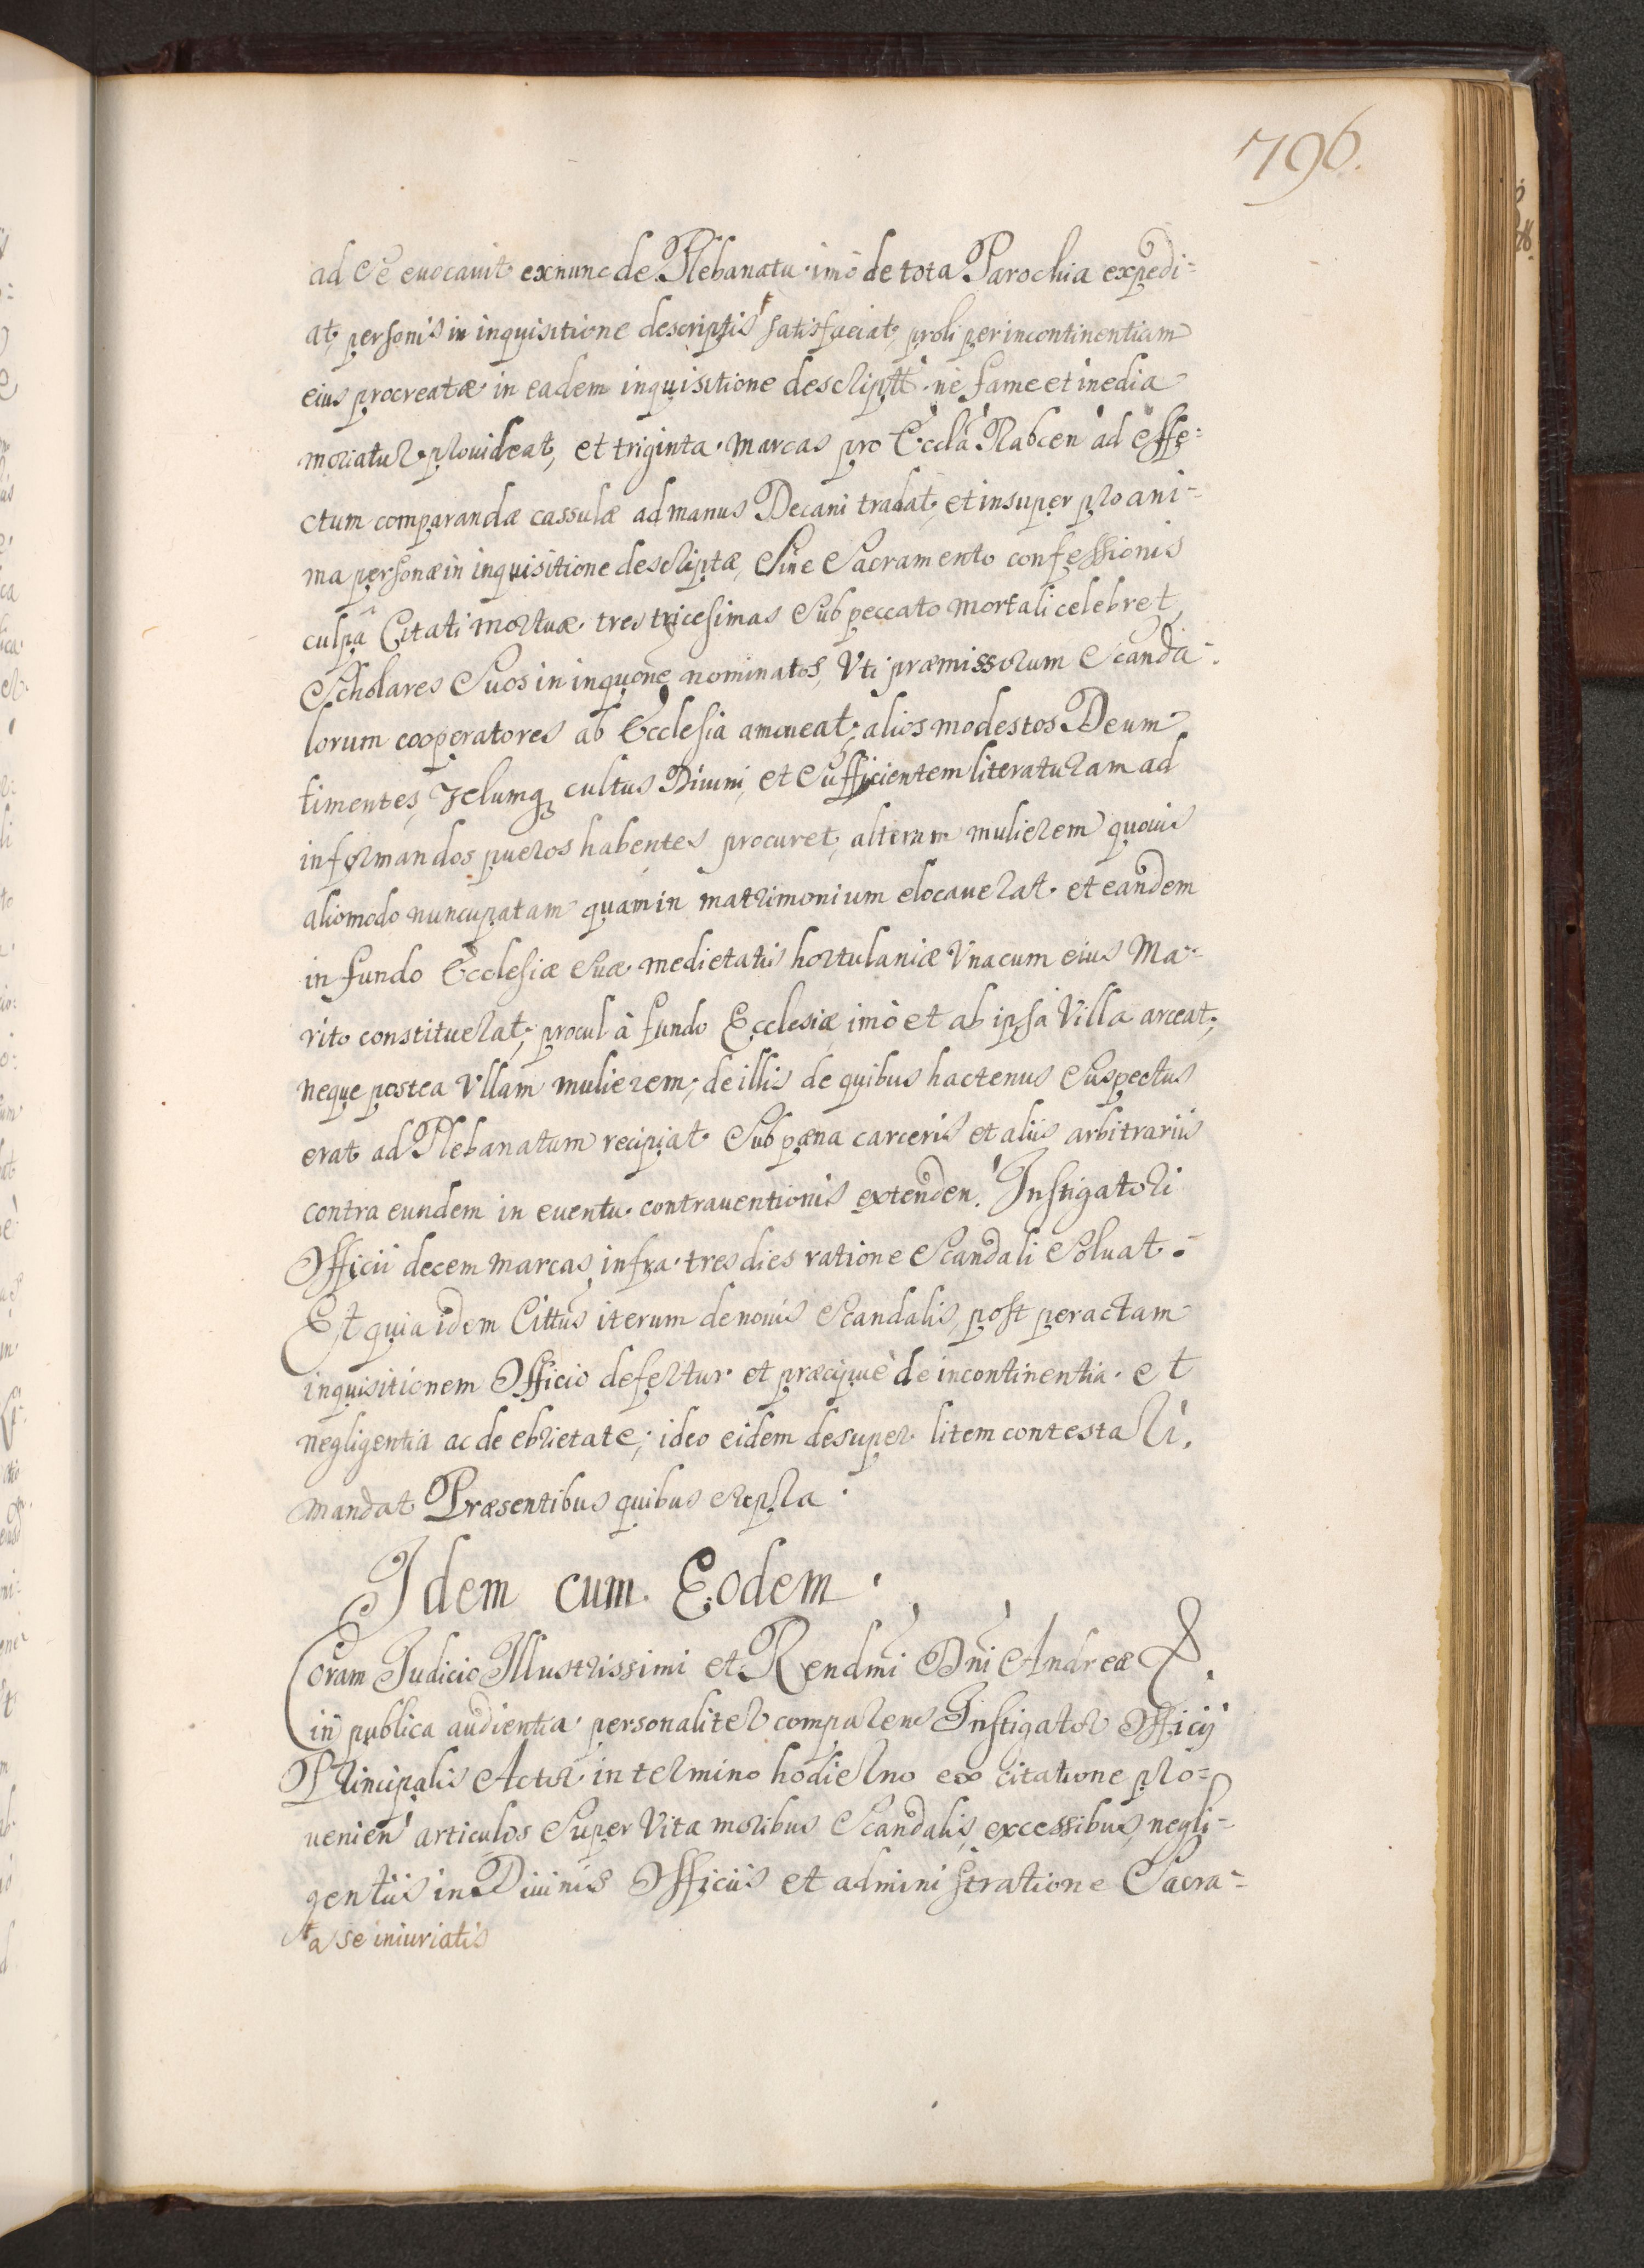 796.
ad se euocauit exnunc de Plebanatu imò de tota Parochia expedi=
at, personis in inquisitione descriptis † satisfaciat, proli per incontinentiam
eius procreatæ in eadem inquisitione descriptæ ne fame et inedia
moriatur prouideat, et triginta marcas pro Eccla Rabcen ad effe=
ctum comparandæ cassulæ ad manus Decani tradat, et insuper pro ani=
ma personæ in inquisitione descriptæ, Sine Sacramento confessionis
culpâ Citati mortuæ tres tricesimas Sub peccato mortali celebret,
Scholares Suos in inquone nominatos, Vti præmissorum Scanda=
lorum cooperatores ab Ecclesia amoueat, alios modestos Deum
timentes, zelumq cultus Diuini, et Sufficientem literaturam ad
informandos pueros habentes procuret, alteram mulierem quouis
aliomodo nuncupatam quam in matrimonium elocauerat et eandem
in fundo Ecclesiæ Suæ medietatis hortulaniæ Vnacum eius Ma=
rito constituerat, procul à fundo Ecclesiæ, imò et ab ipsa Villa arceat,
neque postea Vllam mulierem, de illis de quibus hactenus Suspectus
erat ad Plebanatum recipiat Sub pæna carceris et aliis arbitrariis
contra eundem in euentu contrauentionis extenden. Instigatori
Officii decem marcas infra tres dies ratione Scandali Soluat.
Et quia idem Cittus iterum de nouis Scandalis, post peractam
inquisitionem Officio defertur et præcipuè de incontinentia et
negligentia ac de ebrietate, ideo eidem desuper litem contestari,
mandat Præsentibus quibus supra
Idem cum Eodem.
Coram Judicio Illustrissimi et Rendmi Dni Andreæ &.
in publica audientia personaliter comparens Instigator Officij
Principalis Actor in termino hodierno ex citatione pro=
uenien articulos Super Vita moribus Scandalis, excessibus, negli=
gentiis in Diuinis Officiis et administratione Sacra=
† a se iniuriatis